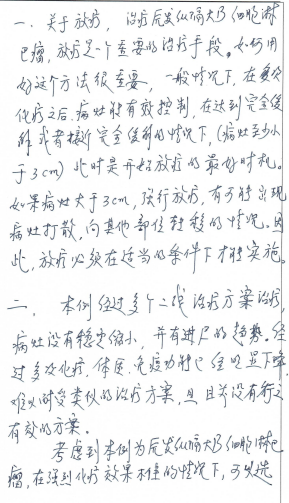 一、关于放疗，治疗原发纵隔大B细胞淋
巴瘤，放疗是一个重要的治疗手段。如何用
好这个方法很重要，一般情况下，在多次
化疗之后，病灶能有效控制，在达到完全缓
解或者接近完全缓解的情况下，（病灶至少小
于3cm）此时是开始放疗的最好时机。
如果病灶大于3cm，强行放疗，有可能出现
病灶打散，向其他部位转移的情况。因
此，放疗必须在适当的条件下才能实施。
二、本例经过多个二线治疗方案治疗，
病灶没有稳定缩小，并有进展的趋势。经
过多次化疗，体质、免疫力都已经明显下降，
难以耐受类似的治疗方案，且并没有行之
有效的方案。
考虑到本例为原发纵隔大B细胞淋巴
瘤，在强烈化疗效果不佳的情况下，可以选